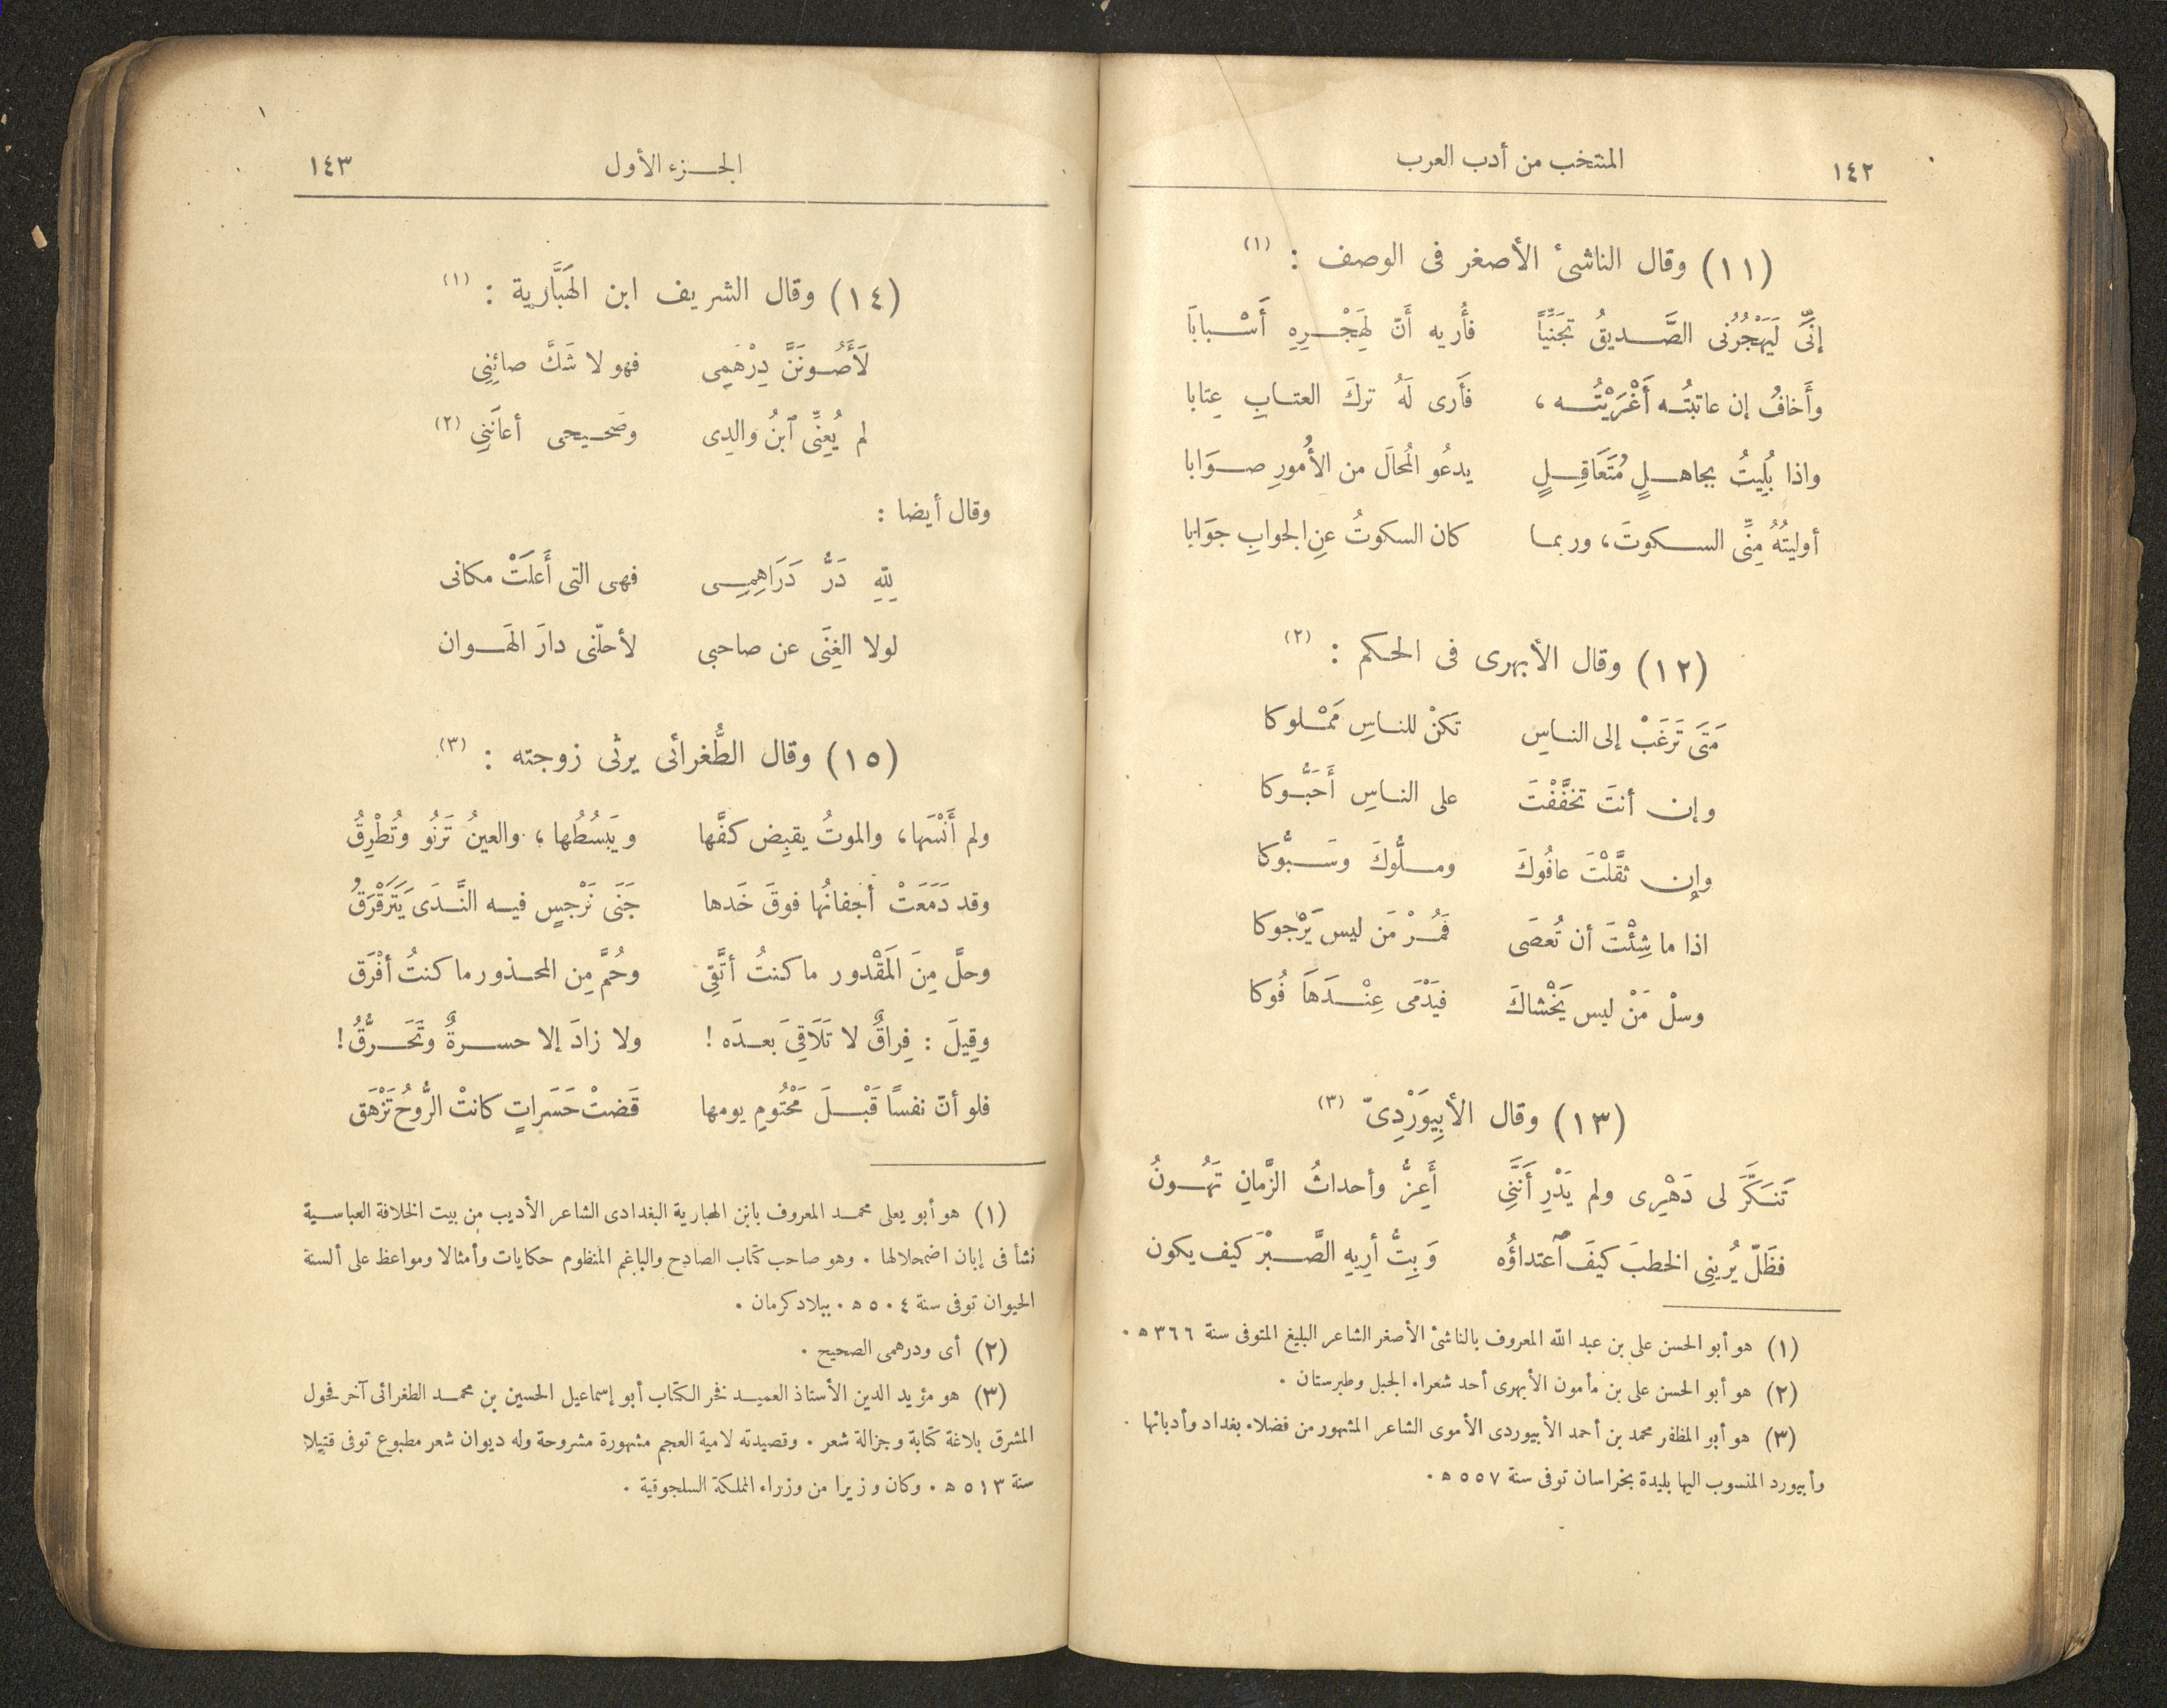 ١٤٢ المنتخب من أدب العرب
(١١) وقال الناشئ الأصغر فى الوصف : (١)
إنِّى لَيَهْجُرُنى الصَّديقُ تجَنِّيًا فأُريه أَنّ لِهَجْرِهِ أَسْبابَا
وأَخافُ إن عاتبتُه أَغْرَيْتُه ، فَأَرى لَهُ تركَ العتابِ عِتابا
واذا بُلِيتُ بجاهلٍ مُتَعَاقِلٍ يدعُو المُحالَ من الأُمورِ صوَابا
أوليتُهُ مِنِّى السكوتَ، وربما كان السكوتُ عنِ الجوابِ جوَابا
(١٢) وقال الأبهرى فى الحكم : (٢)
مَتَى تَرغَبْ إلى الناسِ تَكنْ للناسِ مَمْلوكا
وإن أنتَ تخفَّفْتَ على الناسِ أَحَبُّوكا
وإن ثقَّلْتَ عافُوكَ وملُّوكَ وسَبُّوكا
اذا ما شِئْتَ أن تُعصَى فَمُرْ مَن ليس يَرْجوكا
وسلْ مَنْ ليس يَخْشاكَ فيَدْمَى عِنْدَهَا فُوكا
(١٣) وقال الأبِيوَرْدِىّ (٣)
تَنَكَّرَ لى دَهْرِى ولم يَدْرِ أَنَّنِى أَعِزُّ وأحداثُ الزَّمانِ تَهُونُ
فظَلّ يُرينِى الخطبَ كيفَ ٱعتداؤُه وَبِتُّ أرِيهِ الصَّبْرَ كيف يكون
(١) هو أبو الحسن على بن عبد الله المعروف بالناشئ الأصغر الشاعر البليغ المتوفى سنة ٣٦٦ ه .
(٢) هو أبو الحسن على بن مأمون الأبهرى أحد شعراء الجبل وطبرستان .
(٣) هو أبو المظفر محمد بن أحمد الأبيوردى الأموى الشاعر المشهور من فضلاء بغداد وأدبائها .
وأبيورد المنسوب اليها بليدة بخراسان توفى سنة ٥٥٧ ه .
الجزء الأول ١٤٣
(١٤) وقال الشريف ابن الهَبَّارية : (١)
لَأَصُونَنَّ دِرْهَمِى فهو لا شَكَّ صائِنِى
لم يُعِنِّى ٱبنُ والدِى وصَحيحى أعانَنِى (٢)
وقال أيضا :
لِلّهِ دَرُّ دَرَاهِمِى فهى التى أَعلَتْ مكانى
لولا الغِنَى عن صاحبى لأحلّنى دارَ الهَوان
(١٥) وقال الطُّغرائى يرثى زوجته : (٣)
ولم أَنْسَها، والموتُ يقبِض كفَّها ويَبسُطُها ، والعينُ تَرنُو وُتُطْرِقُ
وقد دَمَعَتْ أجفانُها فوقَ خَدها جَنَى نَرْجسٍ فيه النَّدَى يَتَرَقْرَقُ
وحلَّ مِنَ المَقْدور ما كنتُ أتَّقِى وحُمَّ مِن المحذور ما كنتُ أفْرَق
وقِيلَ : فِراقٌ لا تَلَاقِىَ بعدَه ! ولا زادَ إلا حسرةٌ وتَحَرُّقُ !
فلو أنّ نفسًا قَبْلَ مَحْتُومِ يومها قَضتْ حَسَراتٍ كانتْ الرُّوحُ تَزْهَق
(١) هو أبو يعلى محمد المعروف بابن الهبارية البغدادى الشاعر الأديب من بيت الخلافة العباسية
نشأ فى إبان اضمحلالها . وهو صاحب كتاب الصادح والباغم المنظوم حكايات وأمثالا ومواعظ على ألسنة
الحيوان توفى سنة ٥٠٤ ه . ببلاد كرمان .
(٢) أى ودرهمى الصحيح .
(٣) هو مؤيد الدين الأستاذ العميد فخر الكتاب أبو إسماعيل الحسين بن محمد الطغرائى آخر فحول
المشرق بلاغة كتابة وجزالة شعر . وقصيدته لامية العجم مشهورة مشروحة وله ديوان شعر مطبوع توفى قتيلا
سنة ٥١٣ ه . وكان وزيرا من وزراء المملكة السلجوقية .